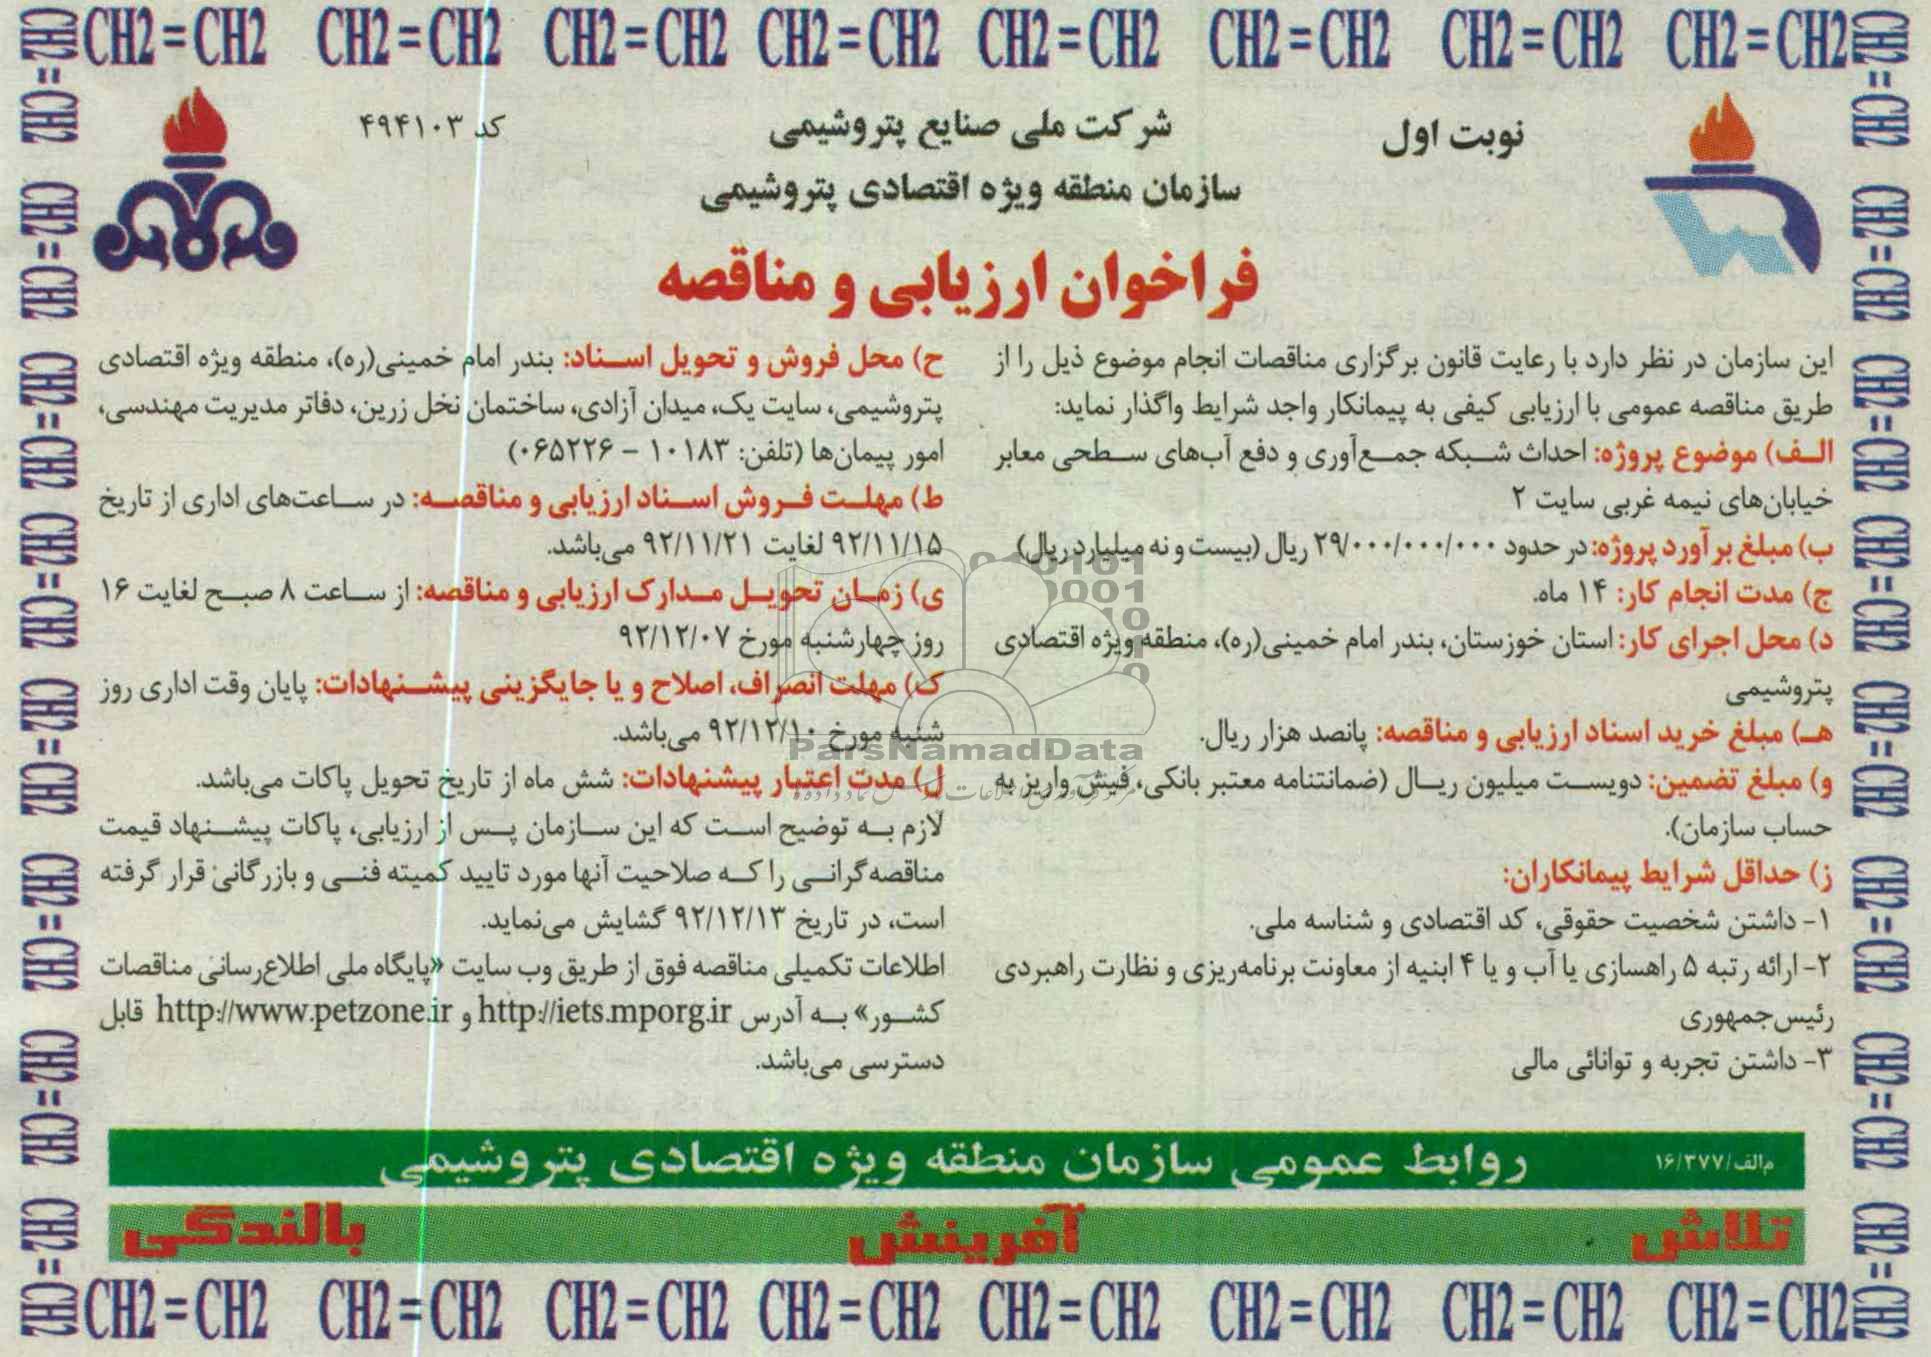 CH2=CH2 CH2=CH2 CH2=CH2 CH2=CH2 CH2=CH2 CH2=CH2 CH2=CH2 CH2=CH2
نوبت اول
شرکت ملی صنایع پتروشیمی
کد ۴۹۴۱۰۳
سازمان منطقه ویژه اقتصادی پتروشیمی
فراخوان ارزیابی و مناقصه
این سازمان در نظر دارد با رعایت قانون برگزاری مناقصات انجام موضوع ذیل را از
طریق مناقصه عمومی با ارزیابی کیفی به پیمانکار واجد شرایط واگذار نماید:
الف) موضوع پروژه: احداث شبکه جمع‌آوری و دفع آب‌های سطحی معابر
خیابان‌های نیمه غربی سایت ۲
ب) مبلغ برآورد پروژه: در حدود ۲۹/۰۰۰/۰۰۰/۰۰۰ ریال (بیست و نه میلیارد ریال)
ج) مدت انجام کار: ۱۴ ماه.
د) محل اجرای کار: استان خوزستان، بندر امام خمینی(ره)، منطقه ویژه اقتصادی
پتروشیمی
هـ) مبلغ خرید اسناد ارزیابی و مناقصه: پانصد هزار ریال.
و) مبلغ تضمین: دویست میلیون ریال (ضمانتنامه معتبر بانکی، فیش واریز به
حساب سازمان).
ز) حداقل شرایط پیمانکاران:
۱- داشتن شخصیت حقوقی، کد اقتصادی و شناسه ملی.
۲- ارائه رتبه ۵ راهسازی یا آب و یا ۴ ابنیه از معاونت برنامه‌ریزی و نظارت راهبردی
رئیس‌جمهوری
۳- داشتن تجربه و توانائی مالی
ح) محل فروش و تحویل اسناد: بندر امام خمینی(ره)، منطقه ویژه اقتصادی
پتروشیمی، سایت یک، میدان آزادی، ساختمان نخل زرین، دفاتر مدیریت مهندسی،
امور پیمان‌ها (تلفن: ۱۰۱۸۳ – ۰۶۵۲۲۶)
ط) مهلت فروش اسناد ارزیابی و مناقصه: در ساعت‌های اداری از تاریخ
۹۲/۱۱/۱۵ لغایت ۹۲/۱۱/۲۱ می‌باشد.
ی) زمان تحویل مدارک ارزیابی و مناقصه: از ساعت ۸ صبح لغایت ۱۶
روز چهارشنبه مورخ ۹۲/۱۲/۰۷
ک) مهلت انصراف، اصلاح و یا جایگزینی پیشنهادات: پایان وقت اداری روز
شنبه مورخ ۹۲/۱۲/۱۰ می‌باشد.
ل) مدت اعتبار پیشنهادات: شش ماه از تاریخ تحویل پاکات می‌باشد.
لازم به توضیح است که این سازمان پس از ارزیابی، پاکات پیشنهاد قیمت
مناقصه‌گرانی را که صلاحیت آنها مورد تایید کمیته فنی و بازرگانی قرار گرفته
است، در تاریخ ۹۲/۱۲/۱۳ گشایش می‌نماید.
اطلاعات تکمیلی مناقصه فوق از طریق وب سایت «پایگاه ملی اطلاع‌رسانی مناقصات
کشور» به آدرس http://iets.mporg.ir و http://www.petzone.ir قابل
دسترسی می‌باشد.
ParsNamadData
م‌الف/۱۶/۳۷۷
روابط عمومی سازمان منطقه ویژه اقتصادی پتروشیمی
تلاش آفرینش بالندگی
CH2=CH2 CH2=CH2 CH2=CH2 CH2=CH2 CH2=CH2 CH2=CH2 CH2=CH2 CH2=CH2